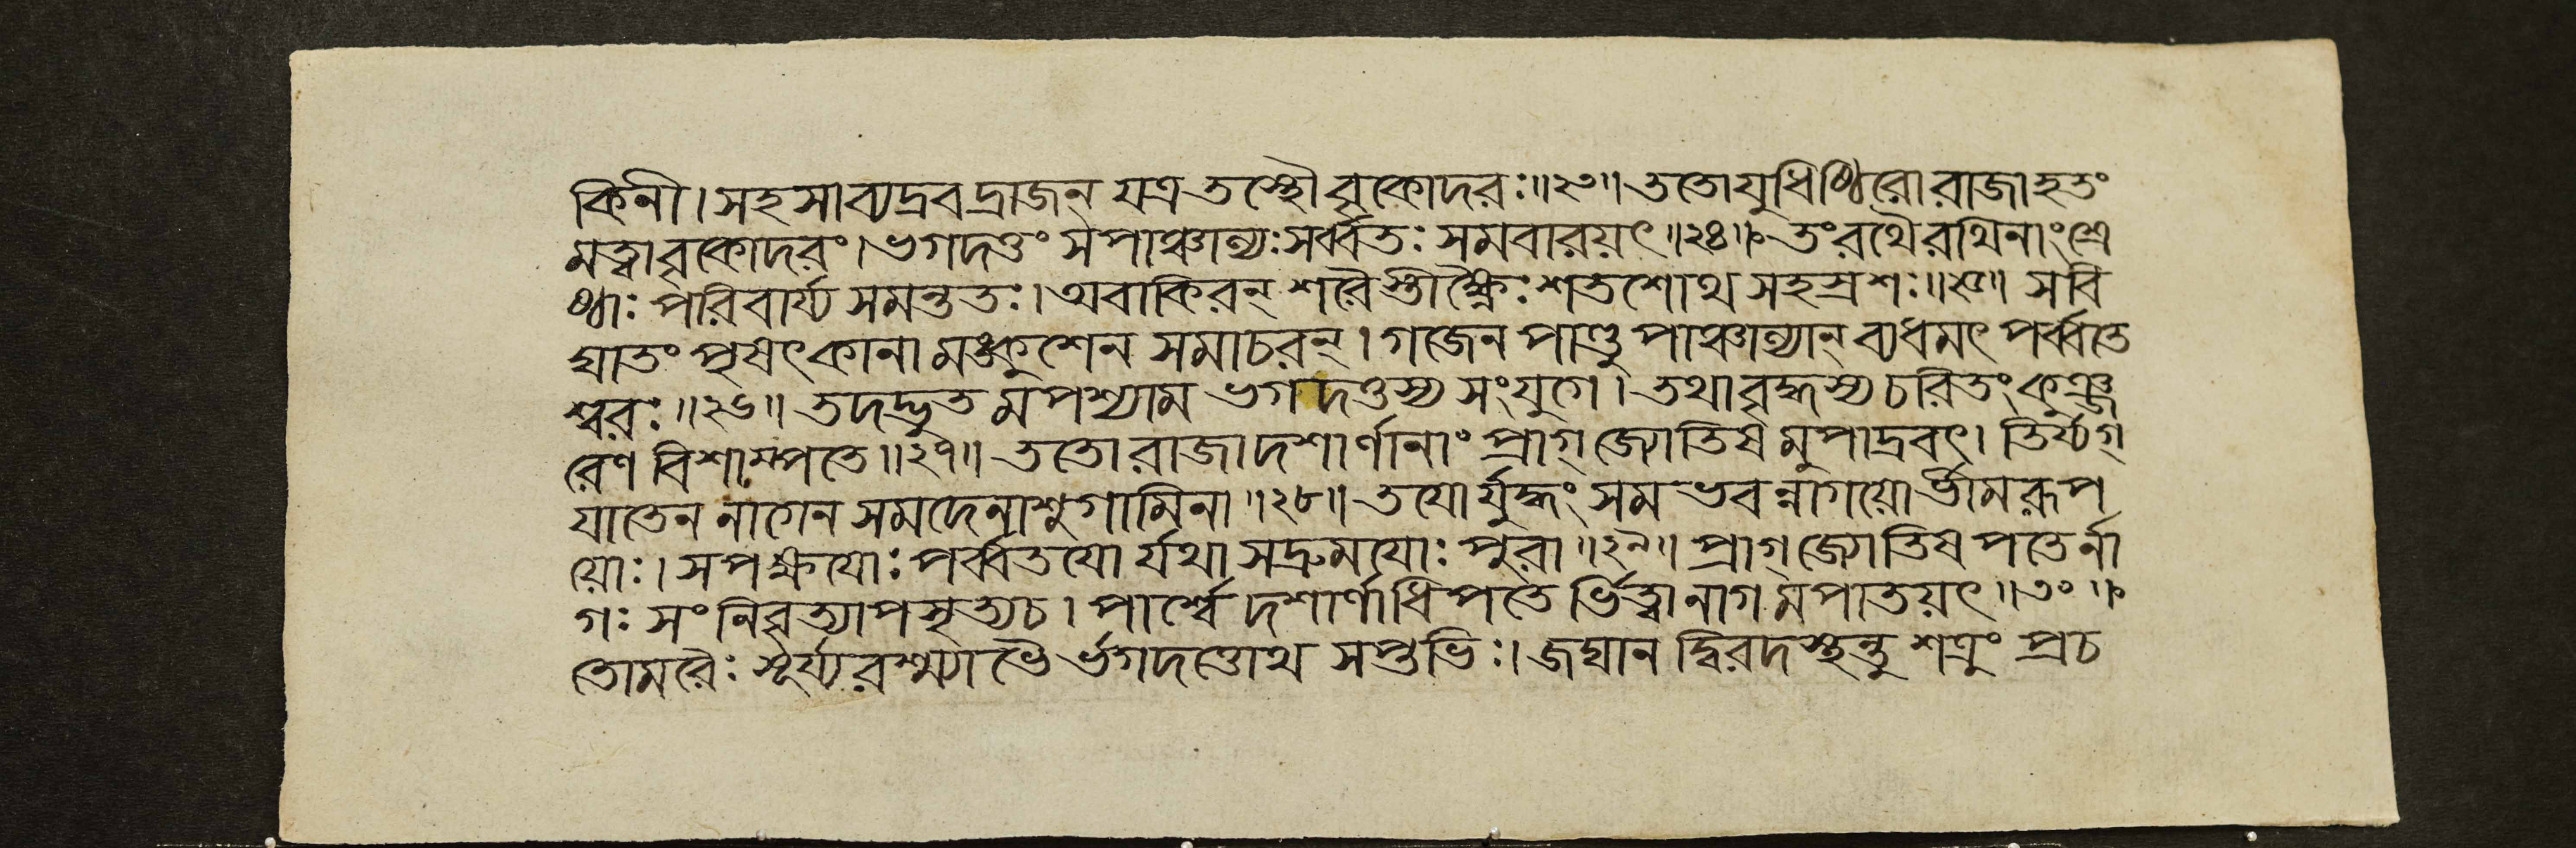 কিনী। সহসাব্যদ্রবদ্রাজন্ যত্র তস্থৌ বৃকোদরঃ॥২৩॥ ততোযুধিষ্ঠিরো রাজা হতং
মত্বা বৃকোদরং। ভগদত্তং সপাঞ্চাল্যঃ সর্ব্বতঃ সমবারয়ৎ॥২৪॥ তং রথৈ রথিনাং শ্রে
ষ্ঠাঃ পরিবার্য্য সমন্ততঃ। অবাকিরন্ শরৈস্তীক্ষ্ণৈঃ শতশোথ সহস্রশঃ॥২৫॥ স বি
ঘাতং পৃষৎকানামঙ্কুশেন সমাচরন্। গজেন পাণ্ডুপাঞ্চাল্যান্ ব্যধমৎ পর্ব্বতে
শ্বরঃ॥২৬॥ তদদ্ভুতমপশ্যাম ভগদত্তস্য সংযুগে। তথা বৃদ্ধস্য চরিতং কুঞ্জ
রেণ বিশাম্পতে॥২৭॥ ততো রাজা দশার্ণানাং প্রাগ্জ্যোতিষমুপাদ্রবৎ। তির্য্যগ্
যাতেন নাগেন সমদেনাশুগামিনা॥২৮॥ তযোর্যুদ্ধং সমভবন্নাগয়োর্ভীমরূপ
য়োঃ। সপক্ষযোঃ পর্ব্বতযোর্যথা সদ্রুমযোঃ পুরা॥২৯॥ প্রাগ্জ্যোতিষপতের্না
গঃ সংনিবৃত্যাপসৃত্য চ। পার্শ্বে দশার্ণাধিপতের্ভিত্বা নাগমপাতয়ৎ॥৩০॥
তোমরৈঃ সূর্য্যরশ্ম্যাভৈর্ভগদত্তোথ সপ্তভিঃ। জঘান দ্বিরদস্থন্তু শত্রুং প্রচ